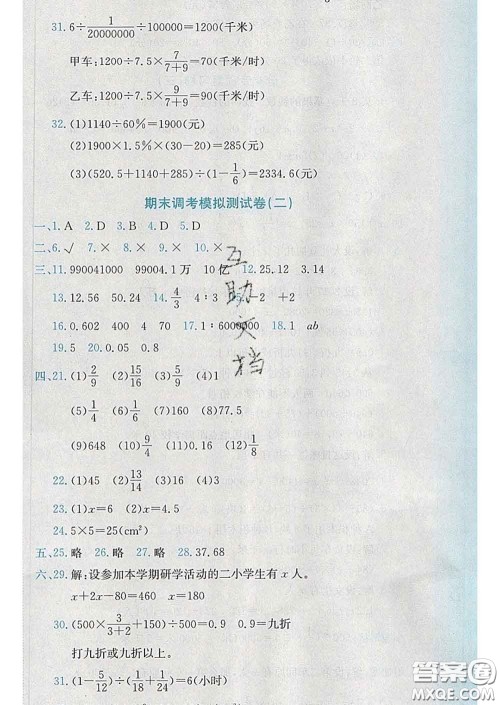 31.6÷1/20000000÷100000=1200(千米)
甲车:1200÷7.5×7/(7+9)=70(千米/时)
乙车:1200÷7.5×9/(7+9)=90(千米/时)
32.(1)1140÷60%=1900(元)
(2)1900×1.5%×(30-20)=285(元)
(3)(520.5+1140+285)÷(1-1/6)=2334.6(元)
期末调考模拟测试卷(二)
一、1.A 2.D 3.A 4.D 5.D
二、6.√ 7.× 8.× 9.× 10.×
三、11.990041000 99004.1万 10亿 12.25.12 3.14
13.12.56 50.24 14.4/3 4:3 15.-2 +2
16.0.602 400 4 70 17.1:6000000 18.1 ab
19.5 20.0.05 0.8
四、21.(1)2/9 (2)15/16 (3)5/2 (4)1
(5)1/4 (6)3/2 (7)160 (8)77.5
(9)648 (10)9/4 (11)0.16 (12)1/8
22.(1)45 (2)13/14 (3)16 (4)3
23.(1)x=6 (2)x=4.5
24.5×5=25(cm²)
五、25.略 26.略 27.略 28.37.68
六、29.解:设参加本学期研学活动的二小学生有x人。
x+2x-80=460 x=180
30.(500×3/(3+2)+150)÷500=0.9 0.9=九折
打九折或九折以上。
31.(1-5/12)÷(1/18+1/24)=6(小时)
互助文档
答案圈
MXQE.COM